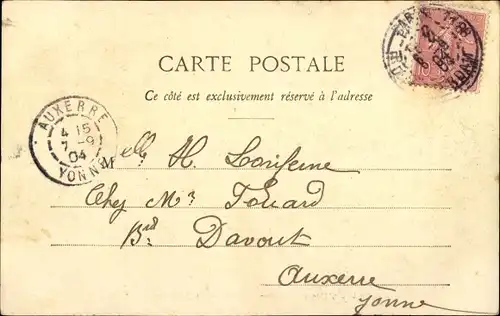 CARTE POSTALE
Ce côté est exclusivement réservé à l'adresse
AUXERRE
4 15
7 -9
04
YONNE
Melle H. Loriferne
Chez Mr Touard
Brd Davout
Auxerre
Yonne